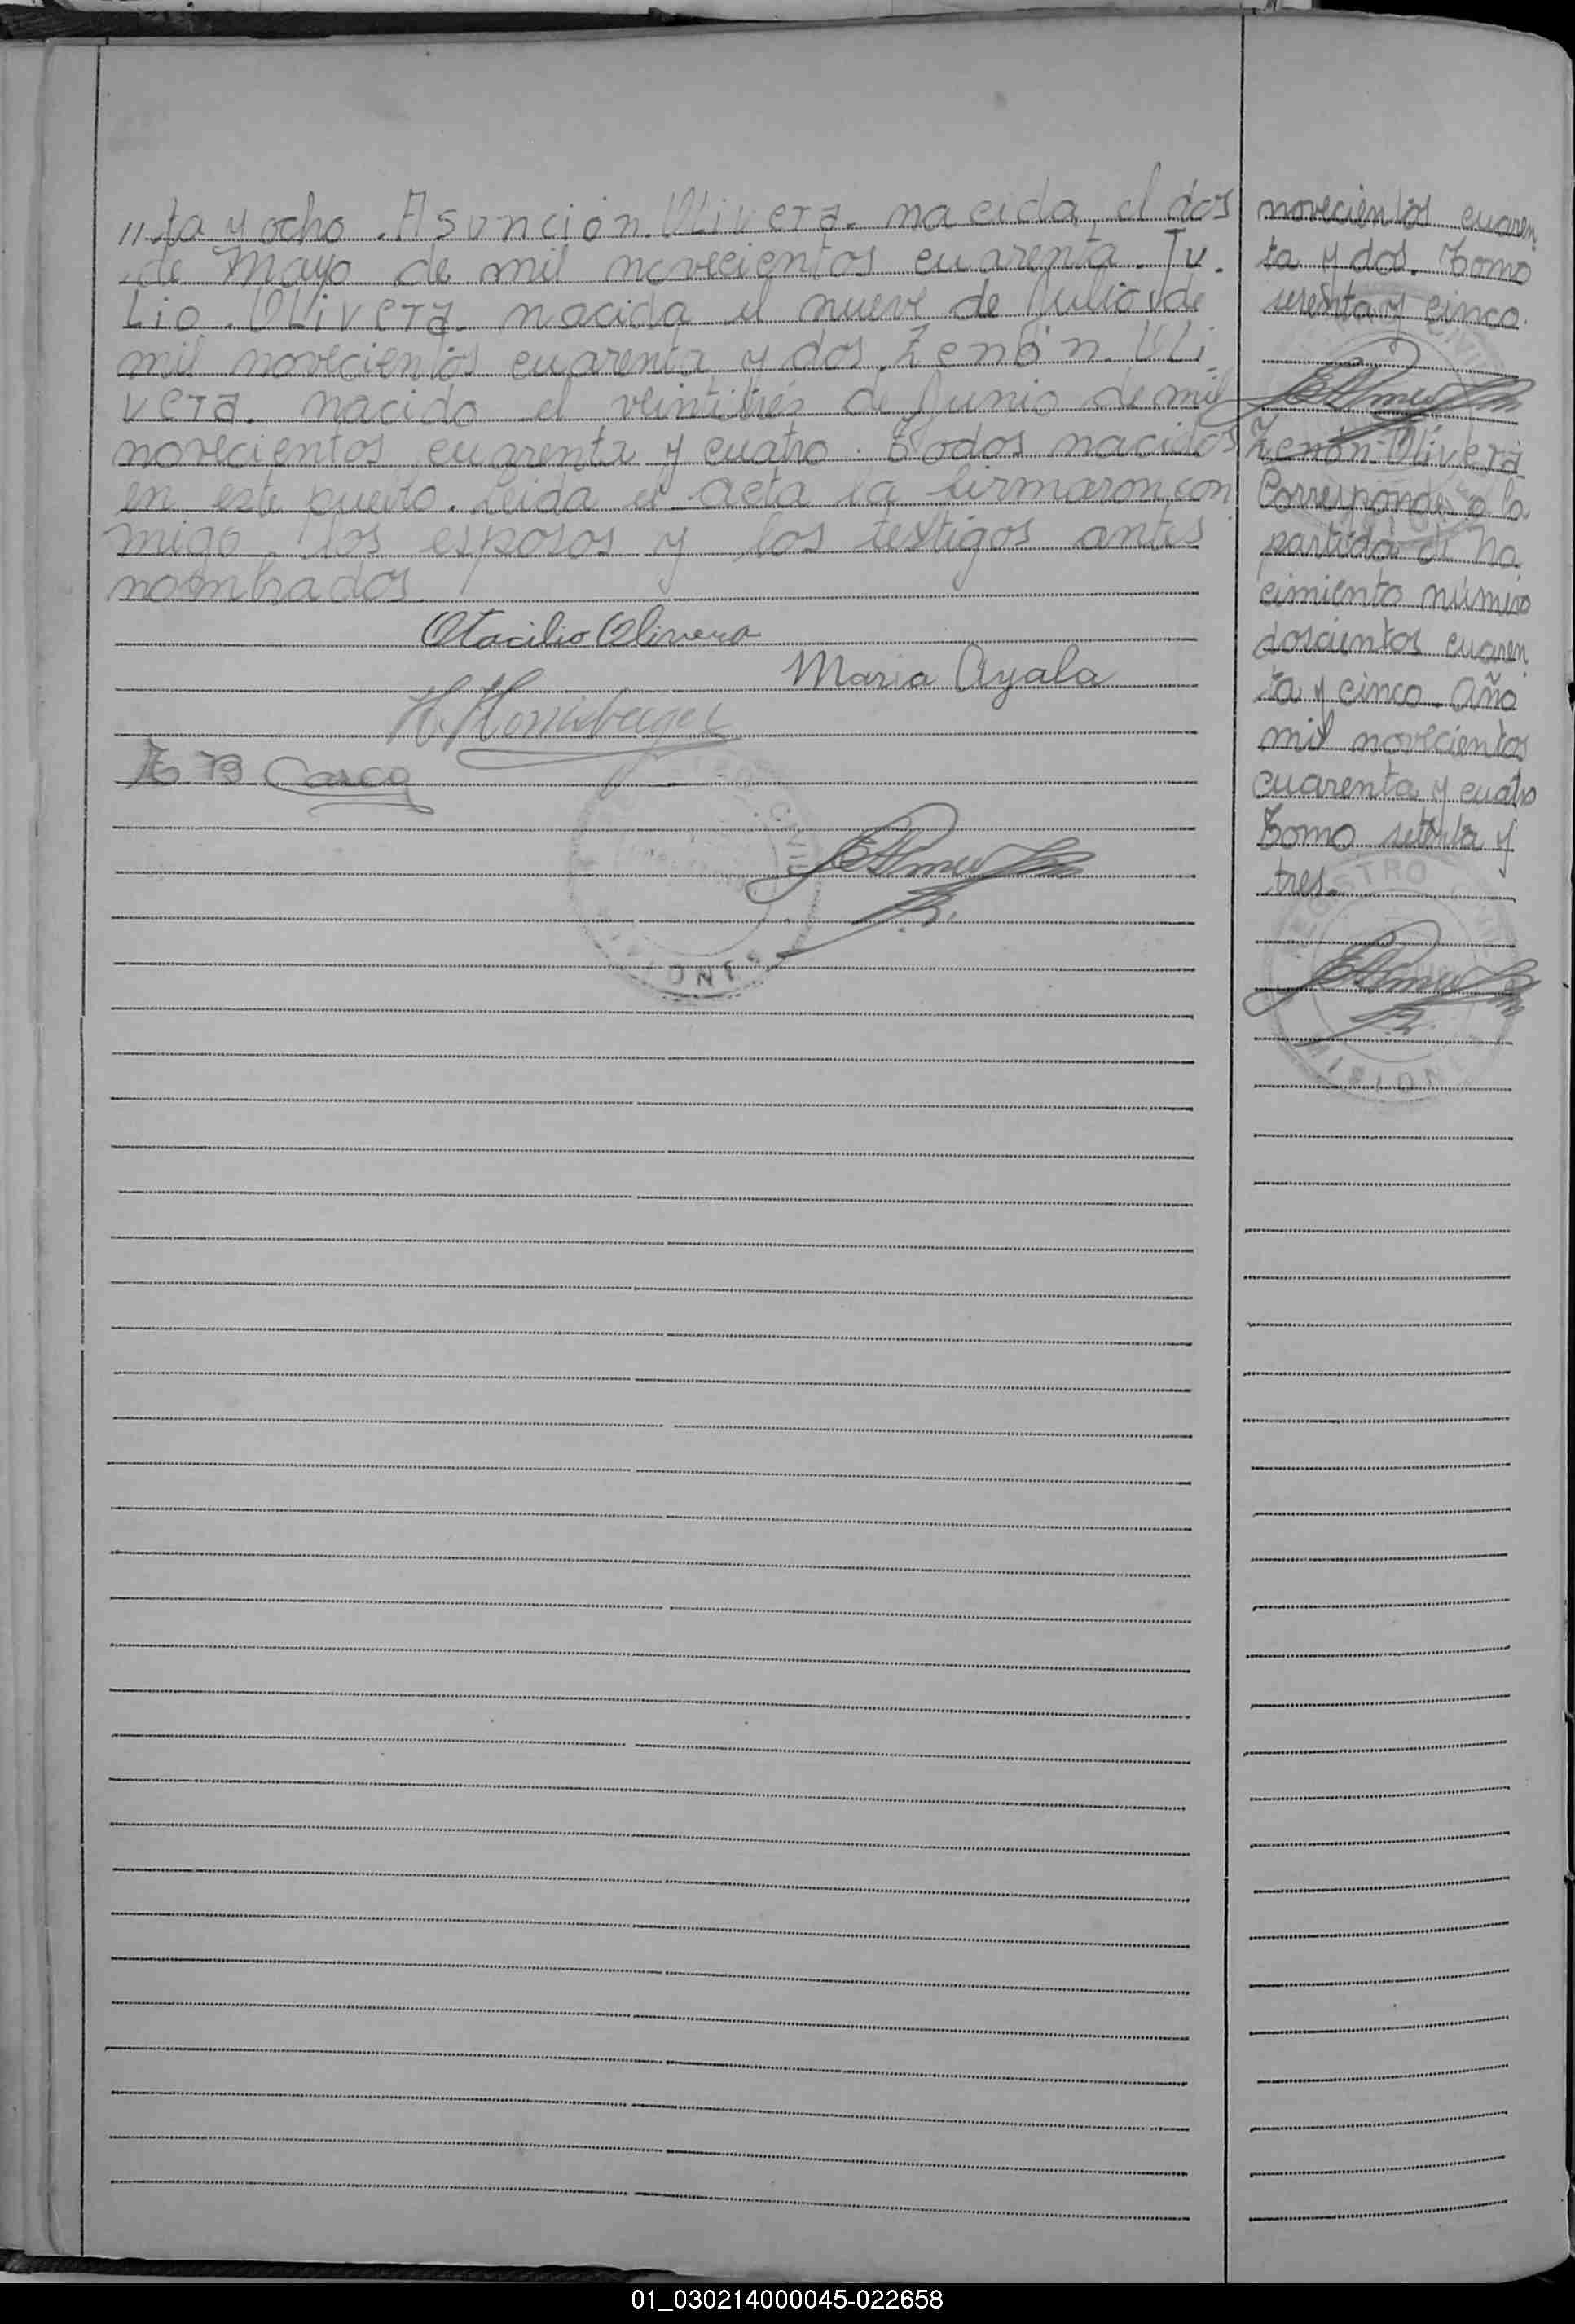 "ta y ocho. Asunción. Olivera. nacida, el dos
de Mayo de mil novecientos cuarenta. Ju.
Lio. Olivera. nacida el nueve de Julio de
mil novecientos cuarenta y dos. Zenón. Oli.
vera. nacido el veintitrés de Junio de mil
novecientos cuarenta y cuatro. Todos nacidos
en este pueblo. Leida el acta la firmaron con
migo, los esposos y los testigos antes
nombrados
Otacilio Olivera
Maria Ayala
novecientos cuaren
ta y dos. Tomo
sesenta y cinco.
Zenón Olivera
Corresponde a la
partida de na
cimiento número
doscientos cuaren
ta y cinco. Año
mil novecientos
cuarenta y cuatro
Tomo setenta y
tres.
01_030214000045-022658